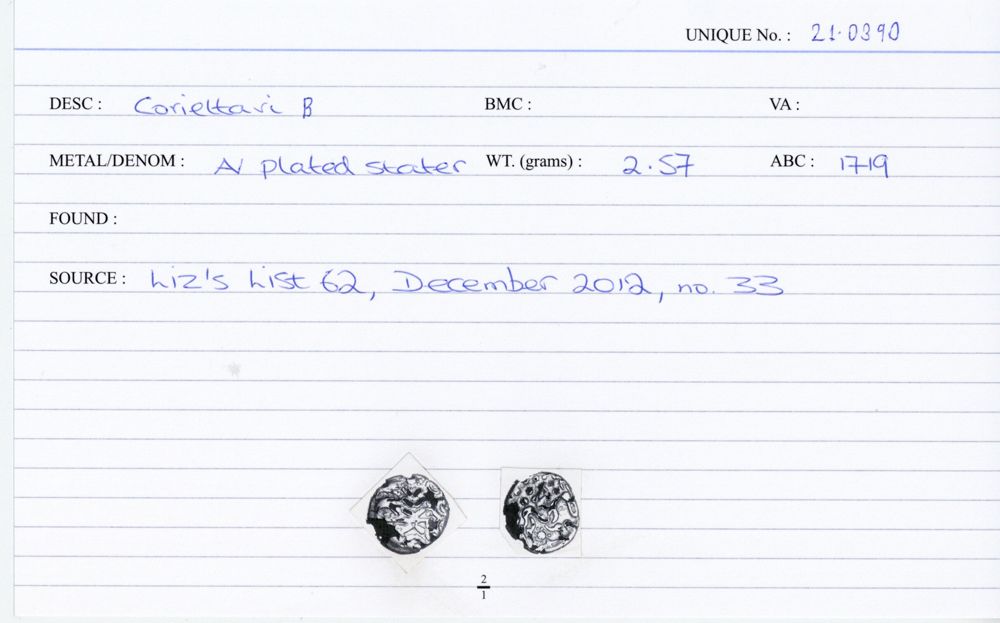 UNIQUE No. : 21.0390
DESC : Corieltavi B BMC : VA :
METAL/DENOM : AV plated stater WT. (grams) : 2.57 ABC : 1719
FOUND :
SOURCE : Liz's List 62, December 2012, no. 33
2
1